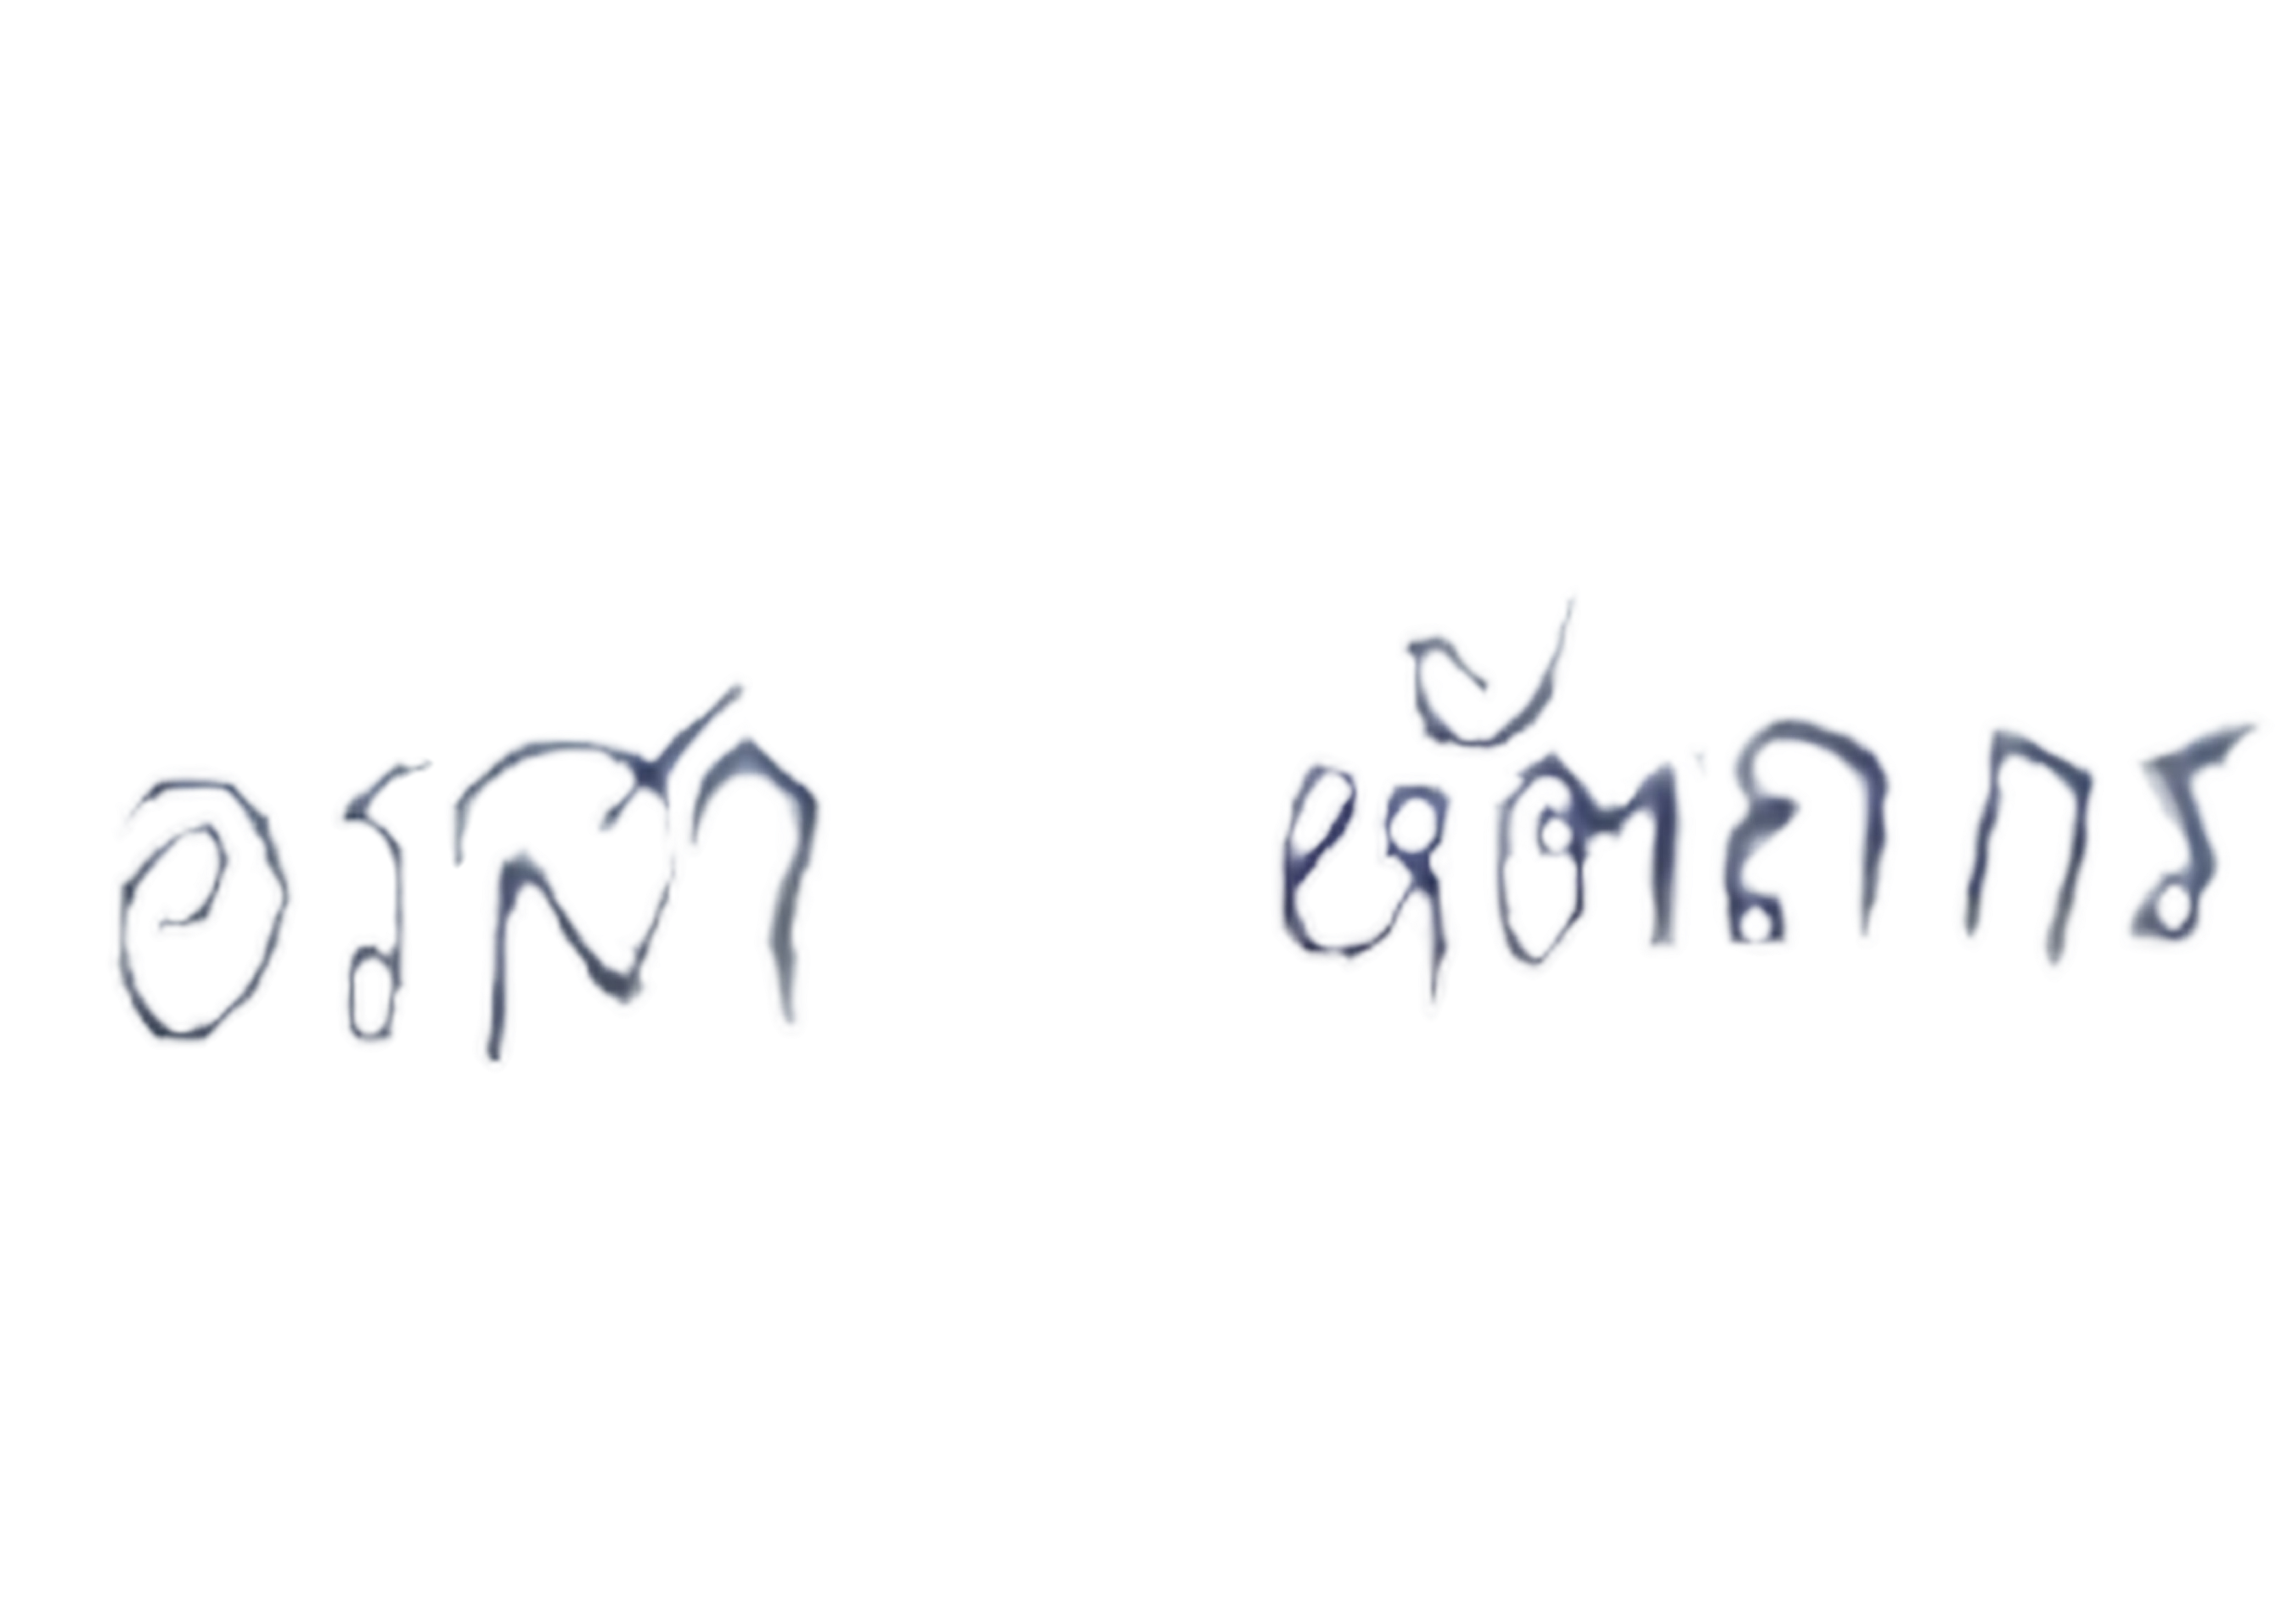 อรสา หัตถการ